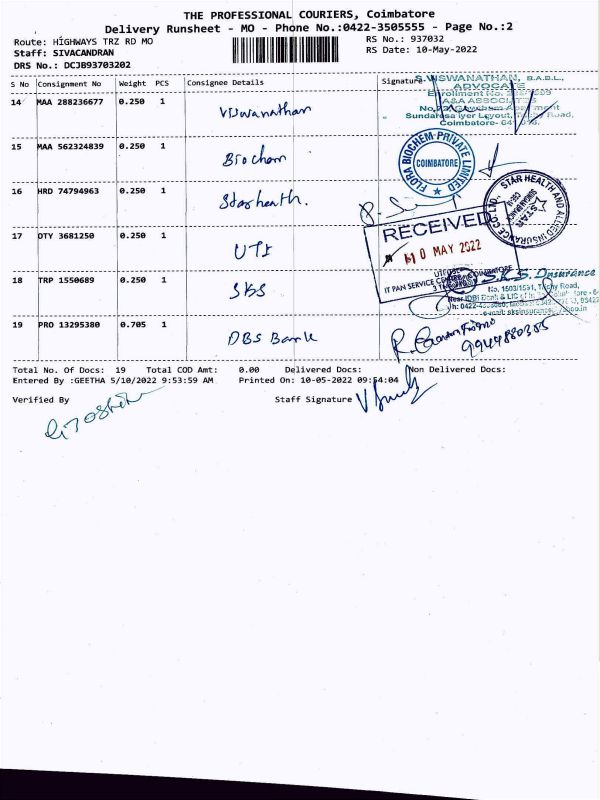 THE PROFESSIONAL COURIERS, Coimbatore
Delivery Runsheet - MO - Phone No.:0422-3505555 - Page No.:2
Route: HIGHWAYS TRZ RD MO RS No.: 937032
Staff: SIVACANDRAN RS Date: 10-May-2022
DRS No.: DCJB93703202
S No Consignment No Weight PCS Consignee Details Signature
S. VISWANATHAN, B.A.B.L.,
ADVOCATE
14 MAA 288236677 0.250 1 Viswanathan
A&A ASSOCIATES
Coimbatore-
15 MAA 562324839 0.250 1 Biochem
FLORA BIOCHEM PRIVATE LIMITED
COIMBATORE
16 HRD 74794963 0.250 1 Starhealth.
STAR HEALTH AND ALLIED INSURANCE CO LTD.
STAR
RECEIVED
10 MAY 2022
17 DTY 3681250 0.250 1 UTI
IT PAN SERVICE
18 TRP 1550689 0.250 1 SKS
S.K.S. Insurance
No. 1503/1591, Trichy Road,
19 PRO 13295380 0.705 1 DBS Bank
9944880305
Total No. Of Docs: 19 Total COD Amt: 0.00 Delivered Docs: Non Delivered Docs:
Entered By :GEETHA 5/10/2022 9:53:59 AM Printed On: 10-05-2022 09:54:04
Verified By Staff Signature